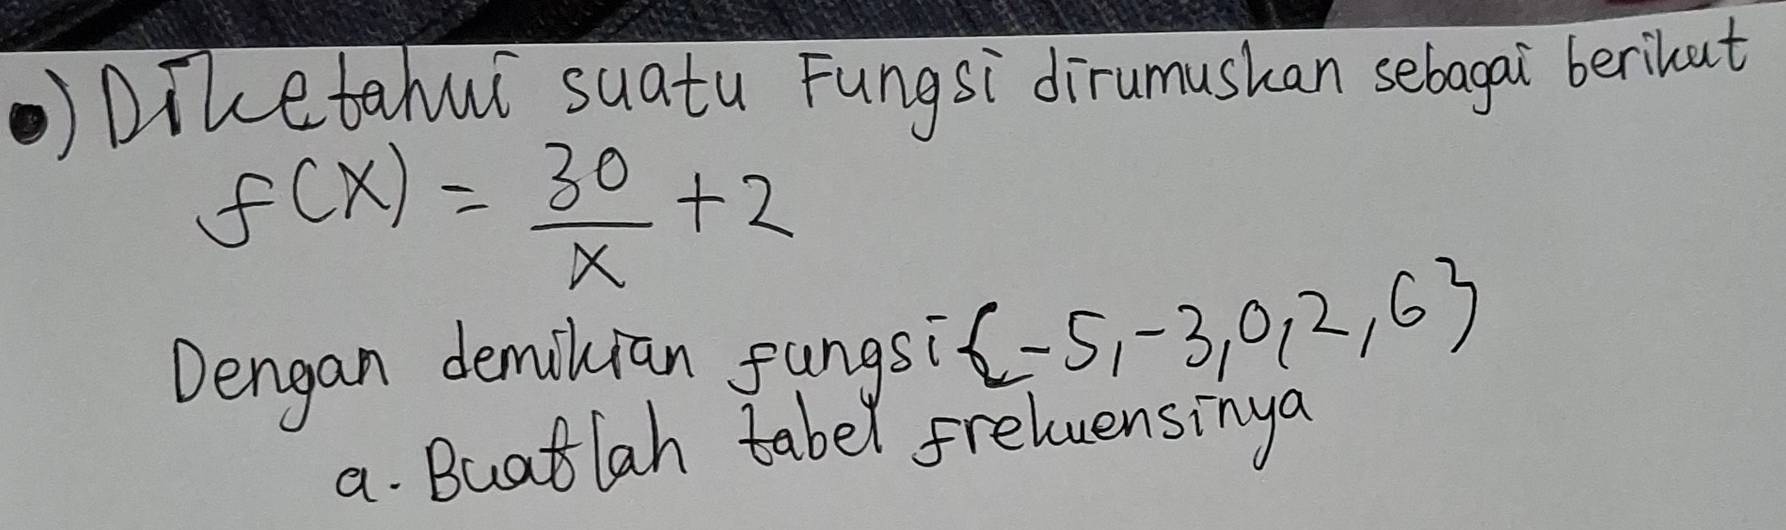 •) Diketahui suatu Fungsi dirumuskan sebagai berikut
f(x) = 30/x + 2
Dengan demikian fungsi {-5,-3,0,2,6}
a. Buatlah tabel frekuensinya